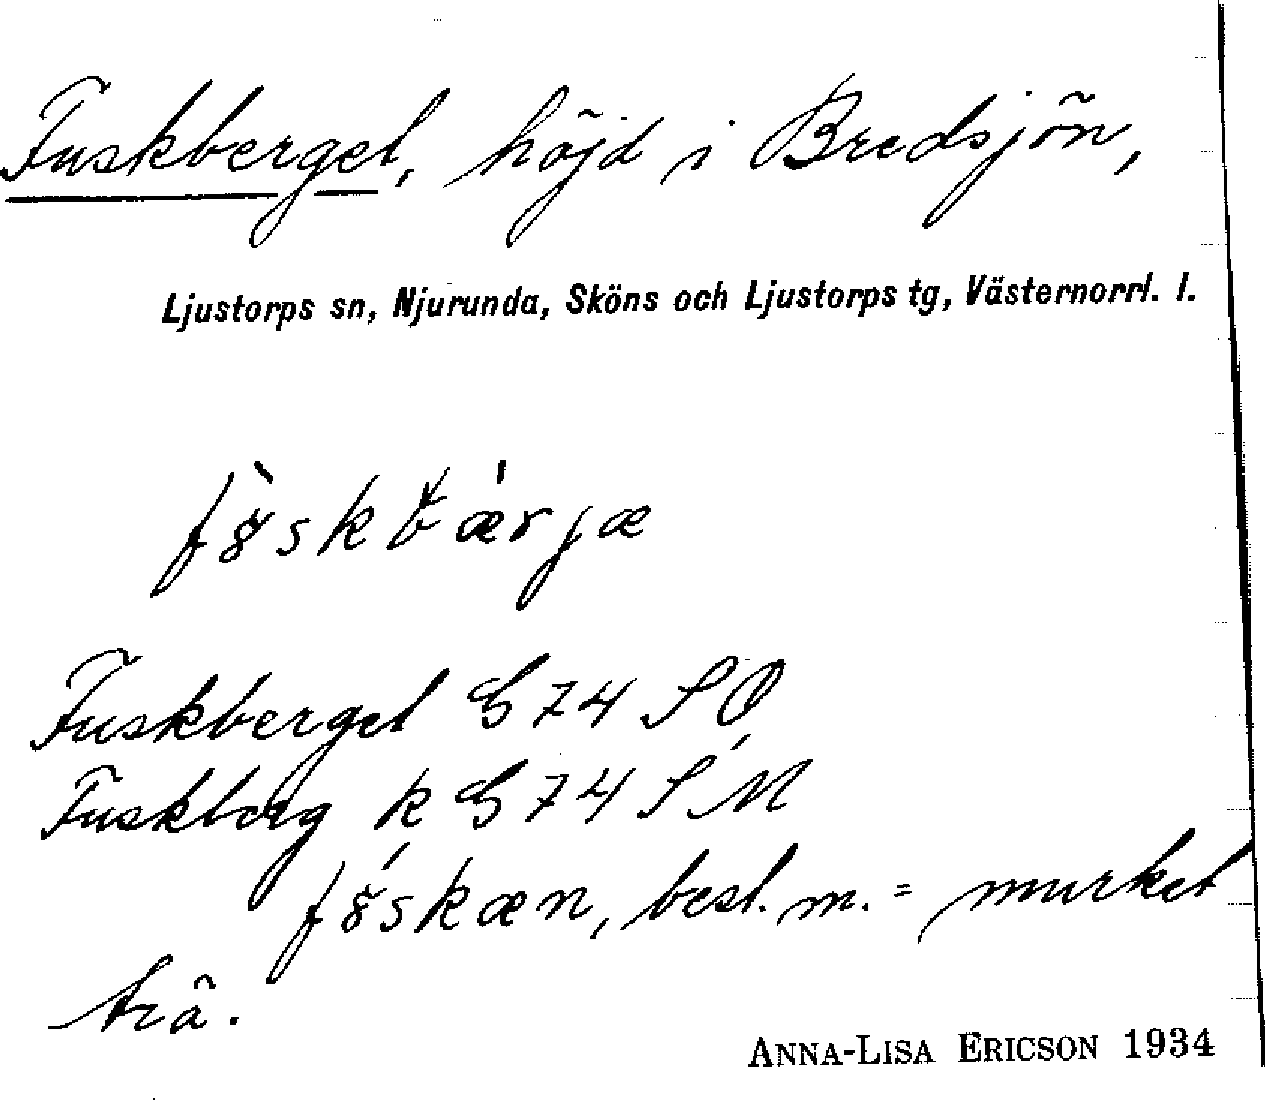 Fuskberget, höjd i Bredsjön,
Ljustorps sn, Njurunda, Sköns och Ljustorps tg, Västernorrl. l.
Fuskberget G 74 SO
Fuskberg k G 74 SM
best. m. = murket
trä.
ANNA-LISA ERICSON 1934